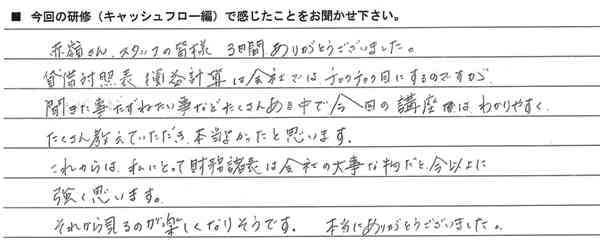 ■ 今回の研修（キャッシュフロー編）で感じたことをお聞かせ下さい。
赤嶺さん、スタッフの皆様 3日間ありがとうございました。
貸借対照表 損益計算は会社ではチョクチョク目にするのですが
聞きた事たずねたい事などたくさんある中で今回の講座は、わかりやすく、
たくさん教えていただき、本当よかったと思います。
これからは、私にとって財務諸表は会社の大事な物だと、今以上に
強く思います。
それから見るのが楽しくなりそうです。 本当にありがとうございました。